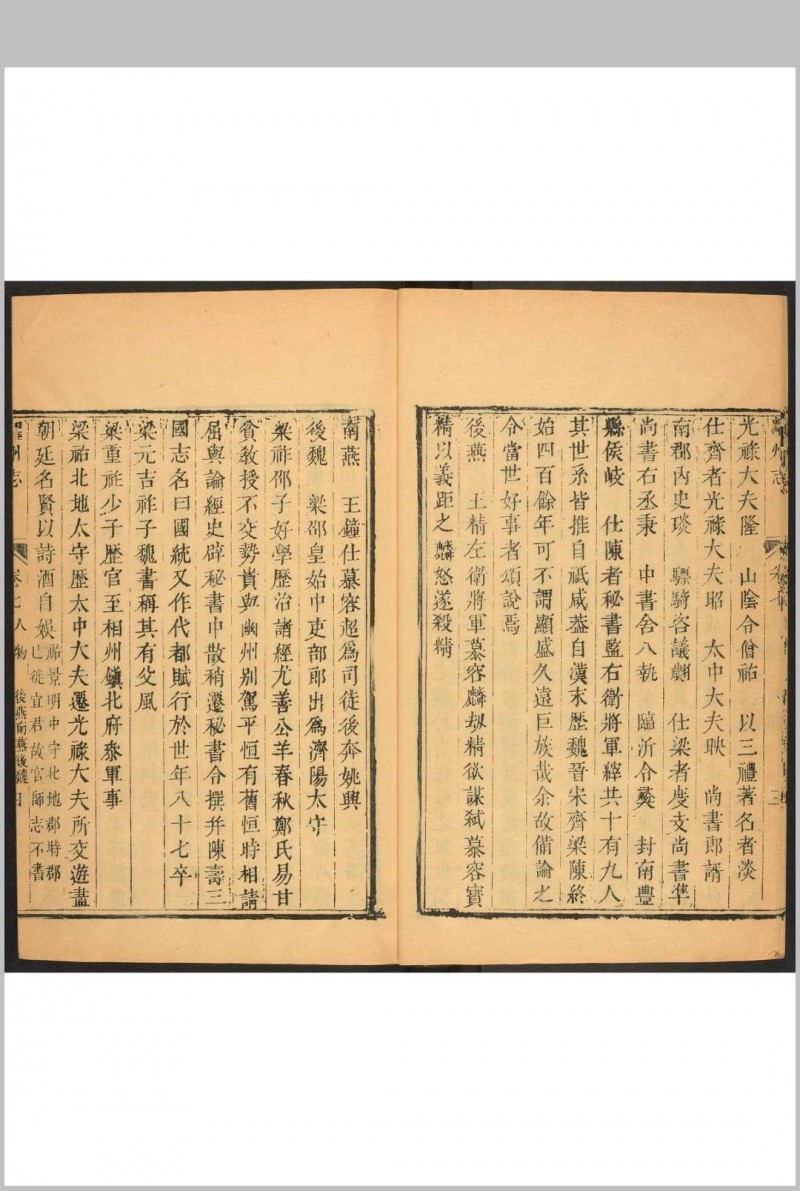 光祿大夫隆　山陰令僧祐　以三禮著名者淡
仕齊者光祿大夫昭　太中大夫映　尚書郎諝
南郡內史琰　驃騎咨議翽　仕梁者度支尚書準
尚書右丞秉　中書舍人執　臨沂令夔　封南豐
縣侯岐　仕陳者秘書監右衛將軍繹共十有九人
其世系皆推自祇咸葢自漢末歷魏晉宋齊梁陳終
始四百餘年可不謂顯盛久遠巨族哉余故備論之
令當世好事者頌說焉
後燕　王精左衛將軍慕容麟刼精欲謀弒慕容寶
精以義距之麟怒遂殺精
南燕　王鐘仕慕容超爲司徒後奔姚興
後魏　梁邵皇始中吏部郎出爲濟陽太守
梁祚邵子好學歷治諸經尤善公羊春秋鄭氏易甘
貧敎授不交勢貴與幽州别駕平恒有舊恒時相請
屈與論經史辟秘書中散稍遷秘書令撰并陳壽三
國志名曰國統又作代都賦行於世年八十七卒
梁元吉祚子魏書稱其有父風
梁重祚少子歷官至相州鎮北府叅軍事
梁祐北地太守歷太中大夫遷光祿大夫所交遊盡
朝廷名賢以詩酒自娛
祐景明中守北地郡時郡
已徙宜君故官師志不書
州志　卷七人物　後燕南燕後魏　四